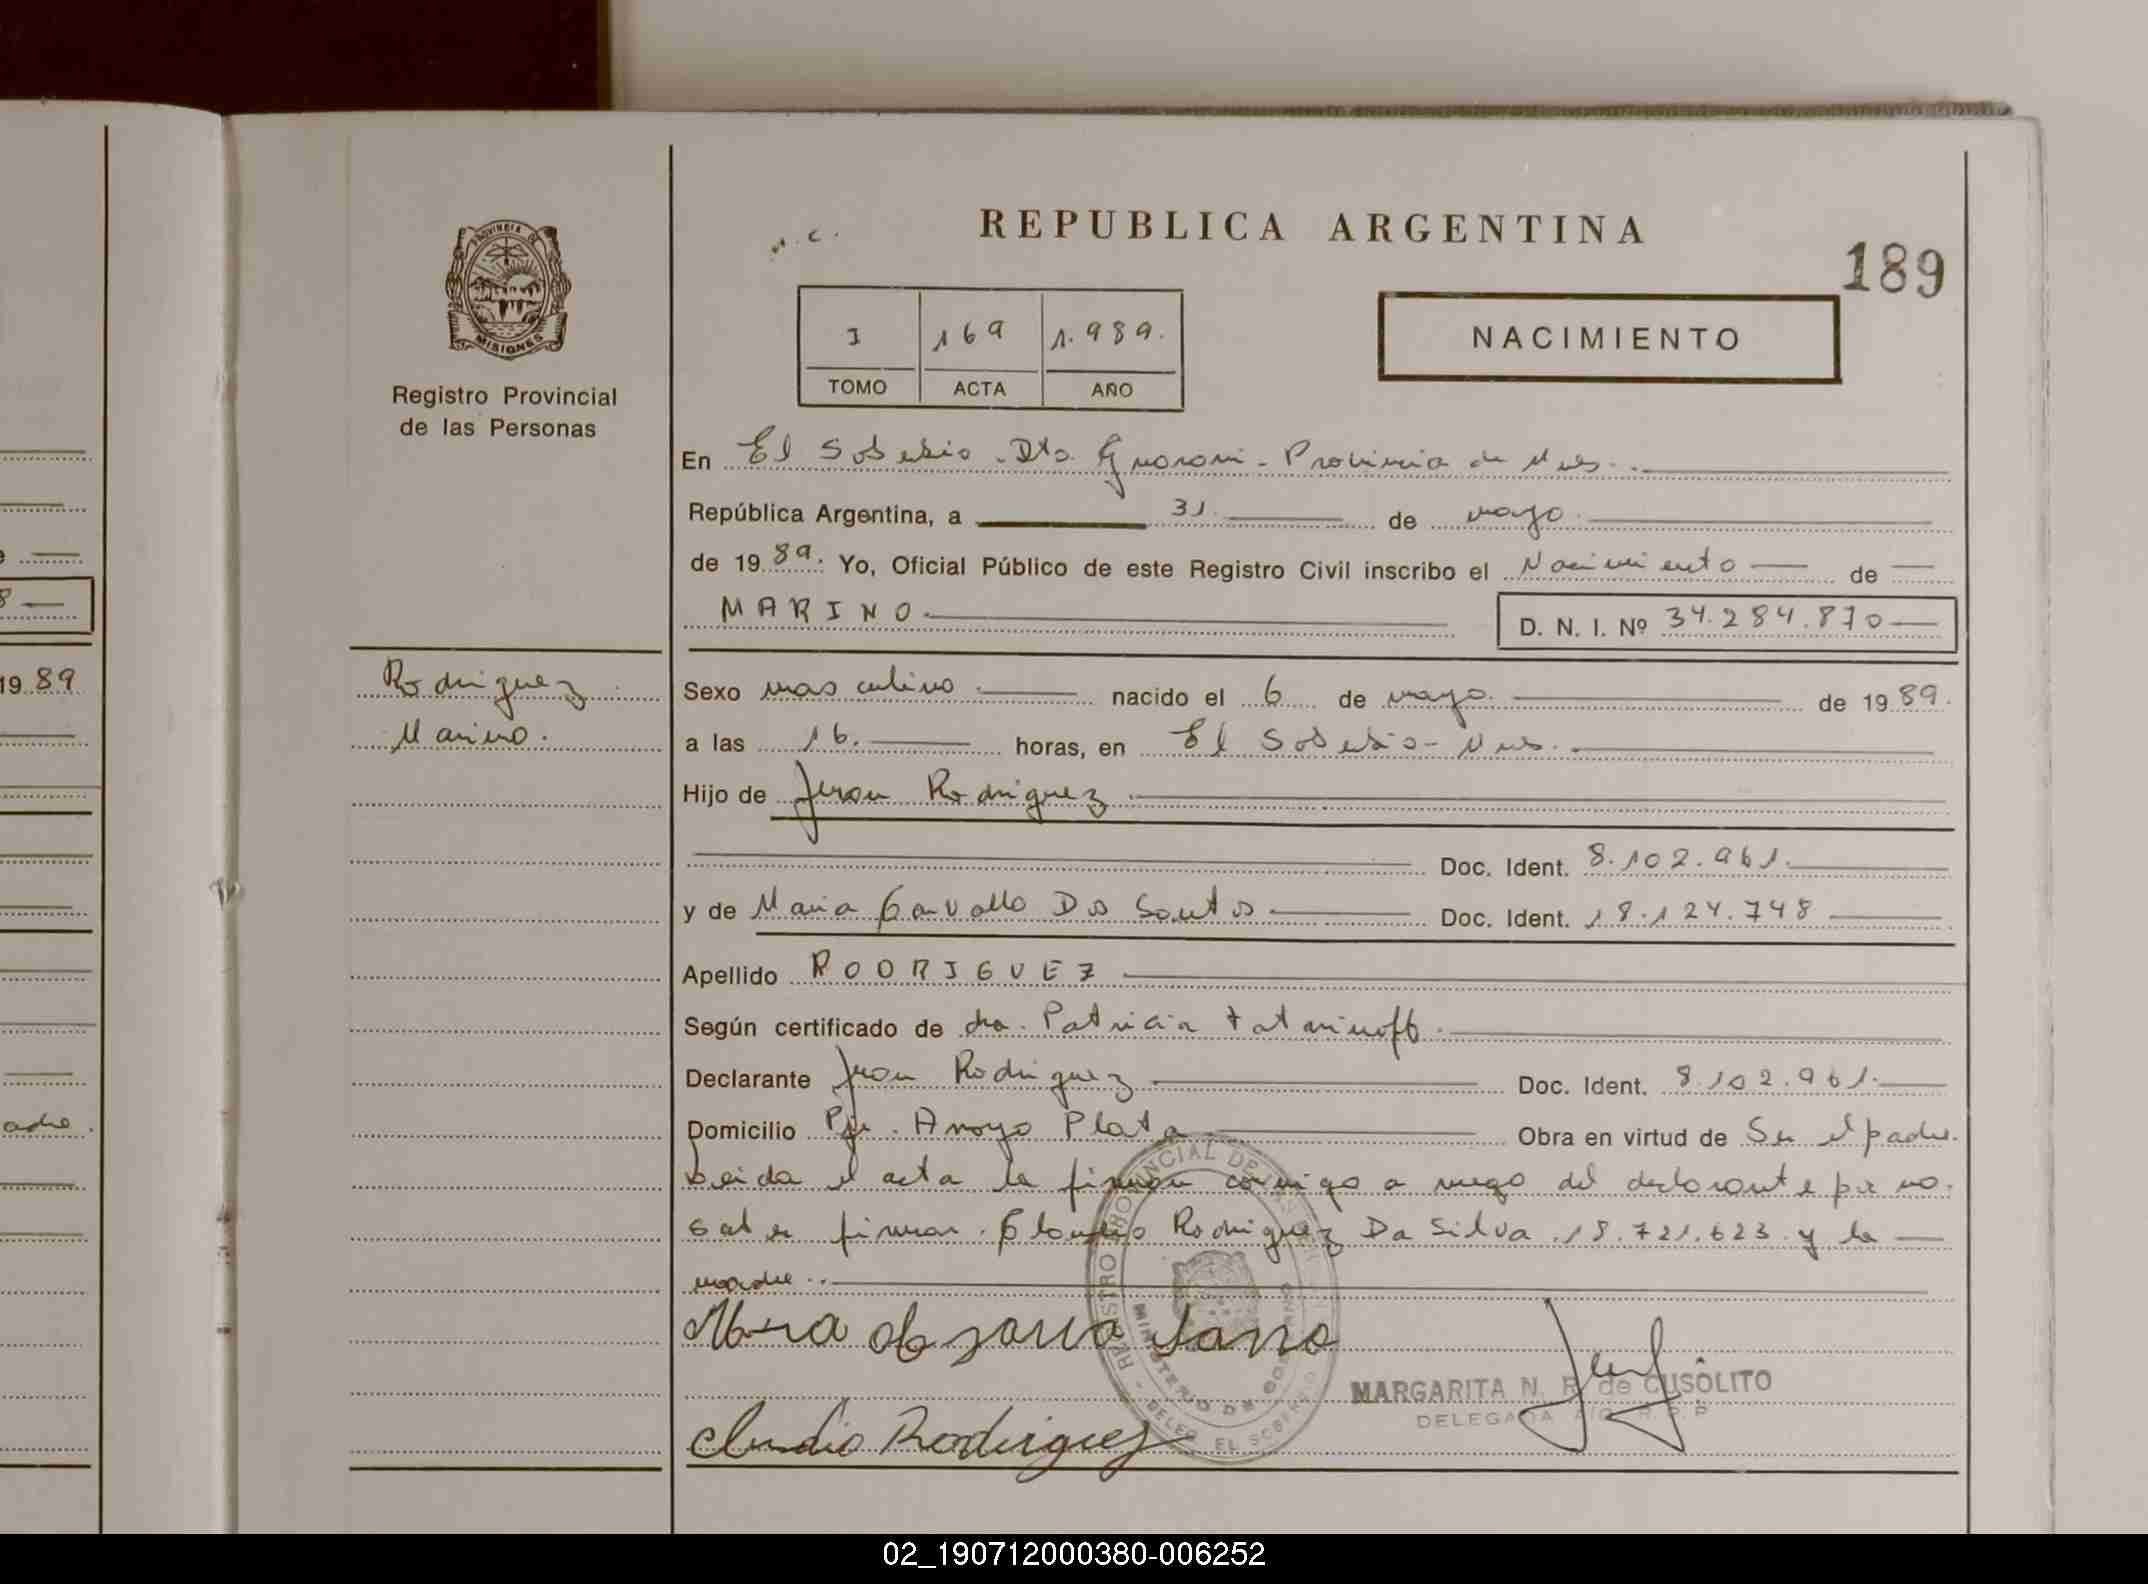 REPUBLICA ARGENTINA
189
I 169 1.989.
TOMO ACTA AÑO
NACIMIENTO
PROVINCIA DE
MISIONES
Registro Provincial
de las Personas
En El Soberbio - Dto. Guarani - Provincia de Mnes.
República Argentina, a 31 de mayo
de 1989. Yo, Oficial Público de este Registro Civil inscribo el Nacimiento de
MARINO D. N. I. Nº 34.284.870
Rodriguez
Marino.
Sexo masculino nacido el 6 de mayo. de 1989.
a las 16. horas, en El Soberbio - Mnes.
Hijo de Juan Rodriguez
Doc. Ident. 8.102.961.
y de Maria Carvallo Dos Santos Doc. Ident. 18.124.748
Apellido RODRIGUEZ
Según certificado de dra. Patricia Tatarinoff.
Declarante Juan Rodriguez Doc. Ident. 8.102.961.
Domicilio Pje. Arroyo Plata Obra en virtud de Ser el padre.
Leida el acta la firman conmigo a ruego del declarante por no
saber firmar. Claudio Rodriguez Da Silva 18.721.623 y la
madre.
REGISTRO PROVINCIAL DE LAS
MINISTERIO DE GOBIERNO
DELEG. EL SOBERBIO
MARGARITA N. R. de CUSOLITO
DELEGADA R. P. P.
Claudio Rodriguez
1989
adre.
02_190712000380-006252